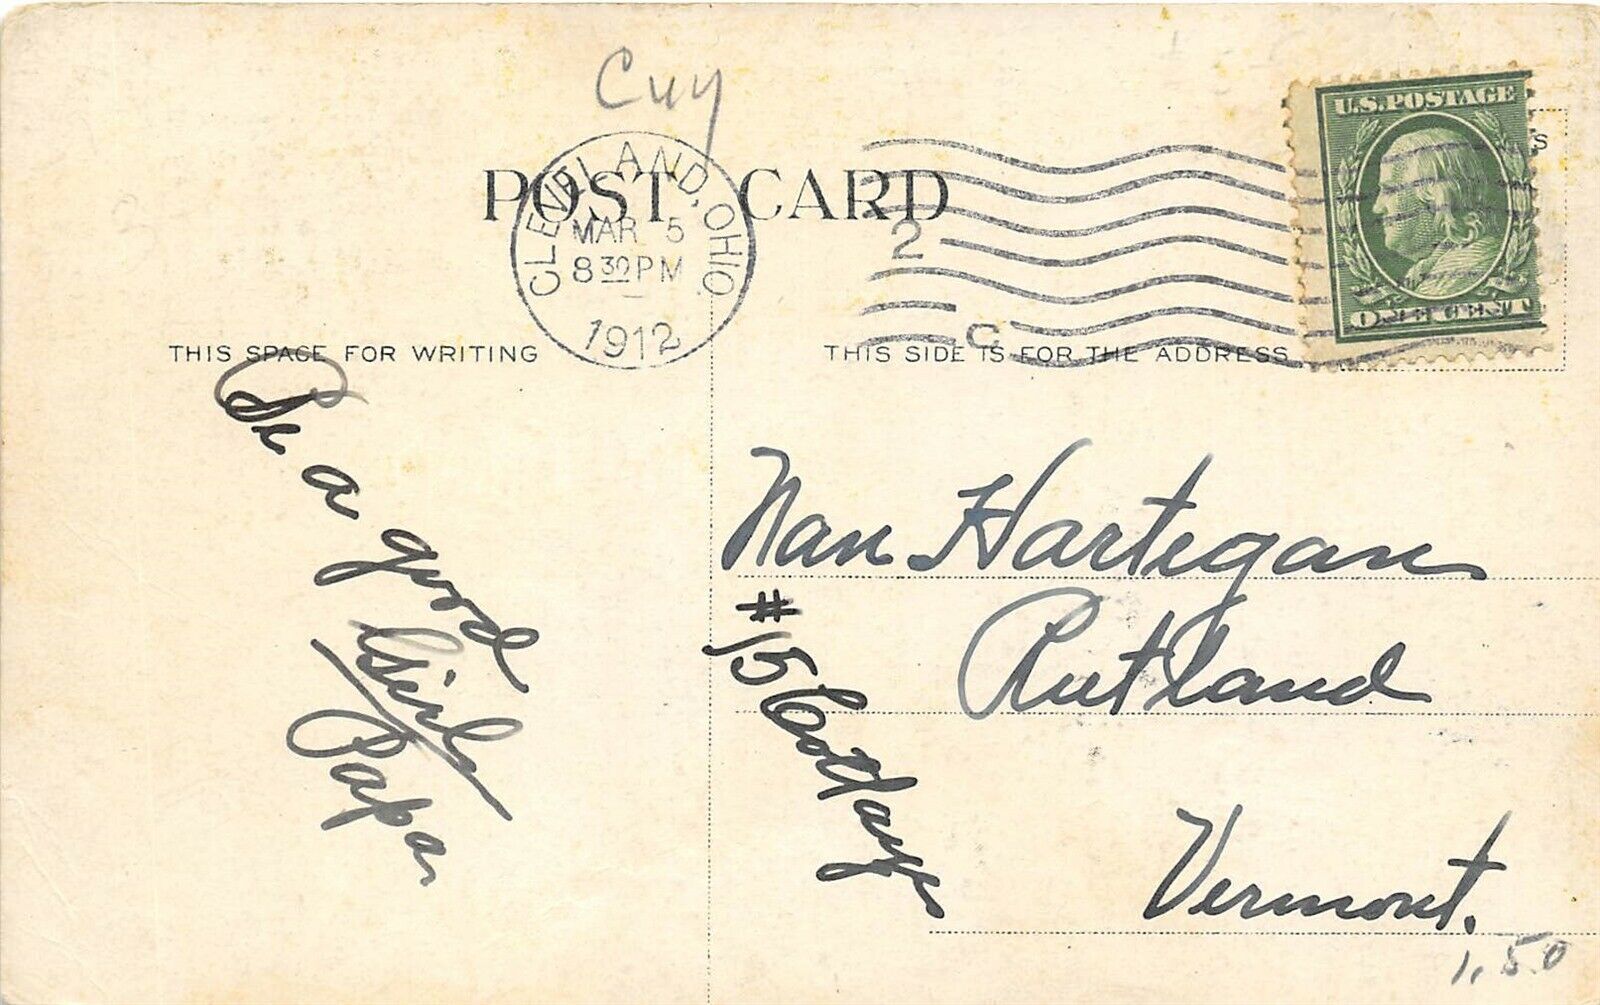 Cuy
POST CARD
CLEVELAND, OHIO.
MAR 5
8 30 PM
1912
2
C
U.S. POSTAGE
ONE CENT
S
THIS SPACE FOR WRITING
THIS SIDE IS FOR THE ADDRESS
Be
a
good
Girl
Papa
Nan Hartigan
#15
Rutland
Vermont.
1.50